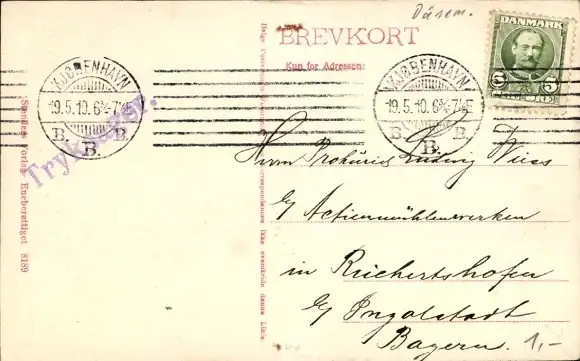 Dänem.
BREVKORT
Kun for Adressen:
DANMARK
5 5
KJØBENHAVN
19.5.10. 6¾-7¼E
B. B. B.
KJØBENHAVN
19.5.10. 6¾-7¼E
B. B.
Tryksager.
Stenders Forlag Eneberettiget 8189
Herrn Prokurist Ludwig Wiess
c/ Actienmühlenwerken
in Reichertshofen
b/ Ingolstadt
Bayern.
1,-